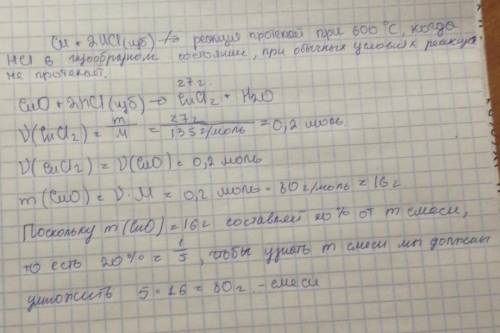 Cu + 2HCl(изб) -/-> реакция протекает при 600 °C, когда
HCl в газообразном состоянии, при обычных условиях реакция
не протекает.
27 г
CuO + 2HCl(изб) → CuCl₂ + H₂O
ν(CuCl₂) = m/M = 27 г/135 г/моль = 0,2 моль
ν(CuCl₂) = ν(CuO) = 0,2 моль
m(CuO) = ν · M = 0,2 моль · 80 г/моль = 16 г
Поскольку m(CuO) = 16 г составляет 20% от m смеси,
то есть 20% = 1/5, чтобы узнать m смеси мы должны
умножить 5 · 16 = 80 г - смеси